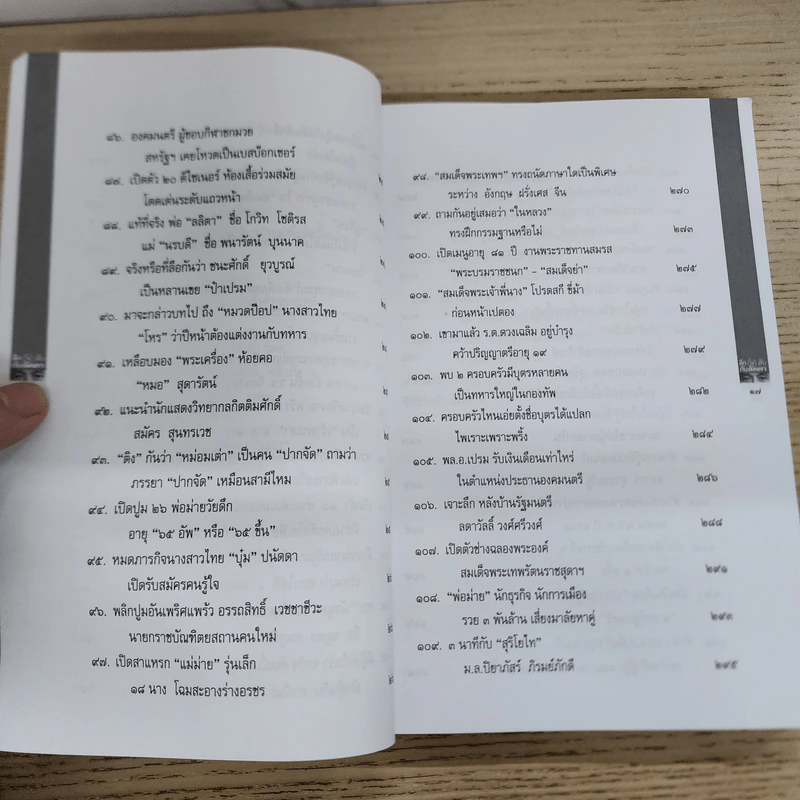 ๘๖. องคมนตรี ผู้ชอบกีฬาชกมวย
สหรัฐฯ เคยโหวตเป็นเบสบ๊อกเซอร์
๘๗. เปิดตัว ๒๐ ดีไซเนอร์ ห้องเสื้อร่วมสมัย
โดดเด่นระดับแถวหน้า
๘๘. แท้ที่จริง พ่อ “ลลิตา” ชื่อ โกวิท โชติรส
แม่ “นรบดี” ชื่อ พนารัตน์ บุนนาค
๘๙. จริงหรือที่ลือกันว่า ชนะศักดิ์ ยุวบูรณ์
เป็นหลานเขย “ป๋าเปรม”
๙๐. มาจะกล่าวบทไป ถึง “หมวดป๊อป” นางสาวไทย
“โหร” ว่าปีหน้าต้องแต่งงานกับทหาร
๙๑. เหลือบมอง “พระเครื่อง” ห้อยคอ
“หมอ” สุดารัตน์
๙๒. แนะนำนักแสดงวิทยากลกิตติมศักดิ์
สมัคร สุนทรเวช
๙๓. “ติง” กันว่า “หม่อมเต่า” เป็นคน “ปากจัด” ถามว่า
ภรรยา “ปากจัด” เหมือนสามีไหม
๙๔. เปิดปูม ๒๖ พ่อม่ายวัยดึก
อายุ “๖๕ อัพ” หรือ “๖๕ ขึ้น”
๙๕. หมดภารกิจนางสาวไทย “บุ๋ม” ปนัดดา
เปิดรับสมัครคนรู้ใจ
๙๖. พลิกปูมอันเพริศแพร้ว อรรถสิทธิ์ เวชชาชีวะ
นายกราชบัณฑิตยสถานคนใหม่
๙๗. เปิดสาแหรก “แม่ม่าย” รุ่นเล็ก
๑๘ นาง โฉมสะอางร่างอรชร
๙๘. “สมเด็จพระเทพฯ” ทรงถนัดภาษาใดเป็นพิเศษ
ระหว่าง อังกฤษ ฝรั่งเศส จีน ๒๗๐
๙๙. ถามกันอยู่เสมอว่า “ในหลวง”
ทรงฝึกกรรมฐานหรือไม่ ๒๗๓
๑๐๐. เปิดเมนูอายุ ๘๑ ปี งานพระราชทานสมรส
“พระบรมราชชนก” – “สมเด็จย่า” ๒๗๕
๑๐๑. “สมเด็จพระเจ้าพี่นาง” โปรดสกี ขี่ม้า
ก่อนหน้าเปตอง ๒๗๗
๑๐๒. เขามาแล้ว ร.ต.ดวงเฉลิม อยู่บำรุง
คว้าปริญญาตรีอายุ ๑๙ ๒๗๙
๑๐๓. พบ ๒ ครอบครัวมีบุตรหลายคน
เป็นทหารใหญ่ในกองทัพ ๒๘๒
๑๐๔. ครอบครัวไหนเอ่ยตั้งชื่อบุตรได้แปลก
ไพเราะเพราะพริ้ง ๒๘๔
๑๐๕. พล.อ.เปรม รับเงินเดือนเท่าไหร่
ในตำแหน่งประธานองคมนตรี ๒๘๖
๑๐๖. เจาะลึก หลังบ้านรัฐมนตรี
ลดาวัลลิ์ วงศ์ศรีวงศ์ ๒๘๘
๑๐๗. เปิดตัวช่างฉลองพระองค์
สมเด็จพระเทพรัตนราชสุดาฯ ๒๙๑
๑๐๘. “พ่อม่าย” นักธุรกิจ นักการเมือง
รวย ๓ พันล้าน เสี่ยงมาลัยหาคู่ ๒๙๓
๑๐๙. ๓ นาทีกับ “สุริโยไท”
ม.ล.ปิยาภัสร์ ภิรมย์ภักดี ๒๙๕
๑๗